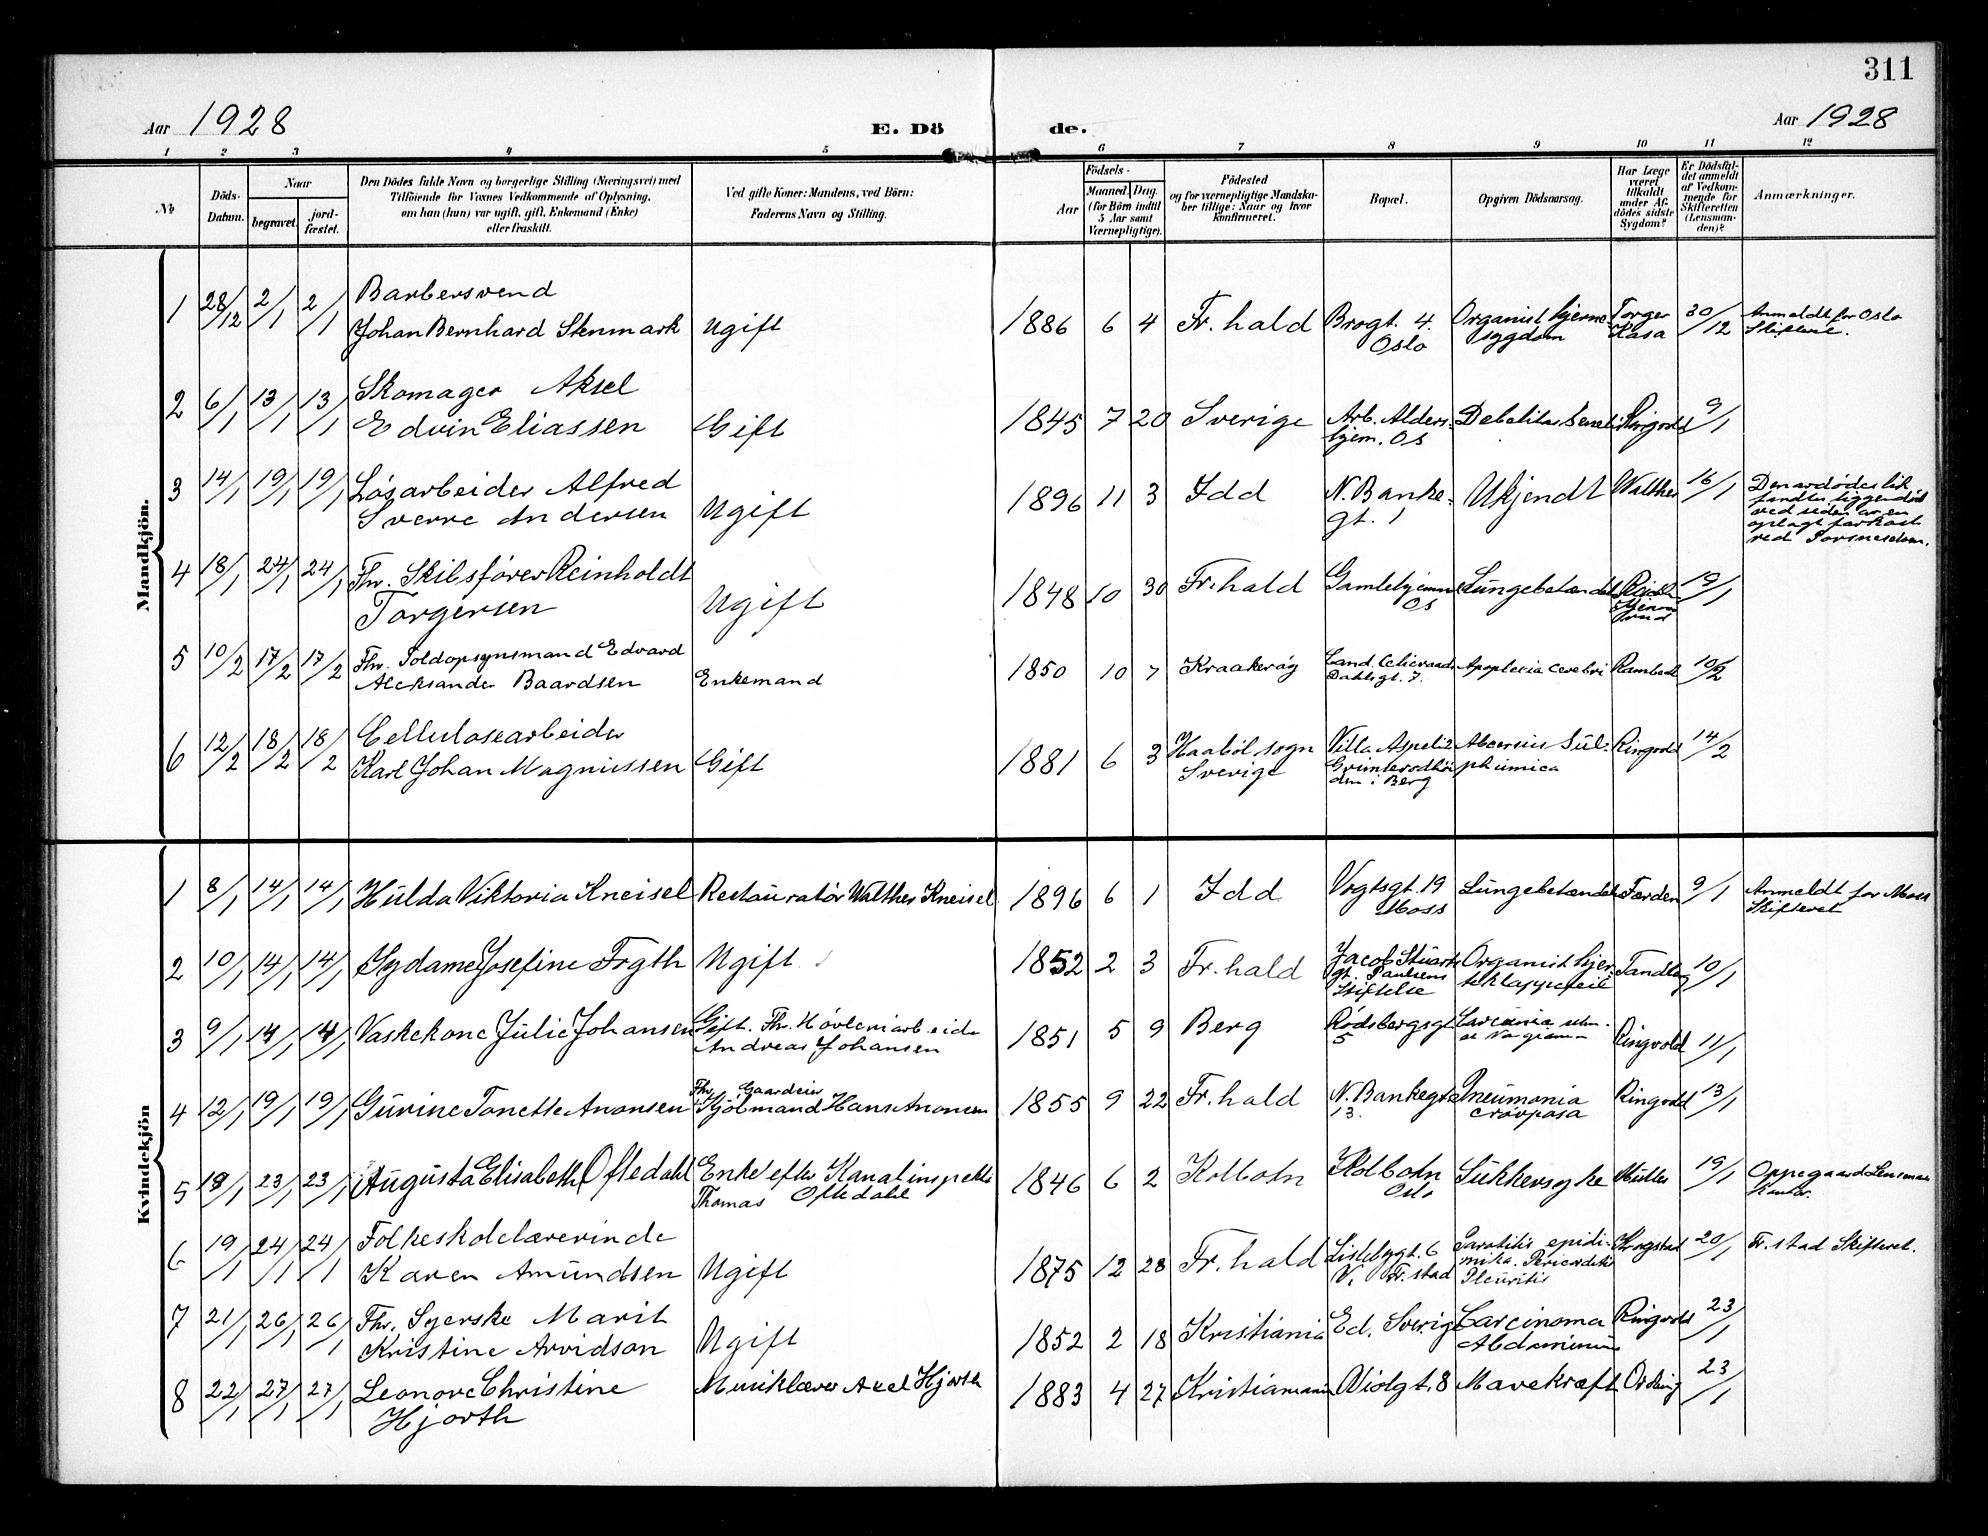 311
Aar 1928
E. Dö
de.
Aar 1928
1 2 3 4 5 6 7 8 9 10 11 12
№
Döds-
Datum.
Naar
begravet.
jord-
fæstet.
Den Dödes fulde Navn og borgerlige Stilling (Næringsvei) med
Tilföiende for Voxnes Vedkommende af Oplysning,
om han (hun) var ugift, gift, Enkemand (Enke)
eller fraskilt.
Ved gifte Koner: Mandens, ved Börn:
Faderens Navn og Stilling.
Födsels-
Aar
Maaned. Dag.
(for Börn indtil
5 Aar samt
Værnepligtige).
Födested
og for værnepligtige Mandska-
ber tillige: Naar og hvor
konfirmeret.
Bopæl.
Opgiven Dödsaarsag.
Har Læge
været
tilkaldt
under Af-
dödes sidste
Sygdom?
Er Dödsfal-
det anmeldt
af Vedkom-
mende for
Skifteretten
(Lensman-
den)?
Anmærkninger.
Mandkjön.
1 28/12 2/1 2/1 Barbersvend
Johan Bernhard Stenmark Ugift 1886 6 4 Fr.hald Brogt. 4.
Oslo Organisk hjerne-
sygdom Torger
Kasa 30/12 Anmeldt for Oslo
Skifteret.
2 6/1 13/1 13/1 Skomager Aksel
Edvin Eliassen Gift 1845 7 20 Sverige Arb. Alders-
hjem. Os Debilitas Senilis Ringvold 9/1
3 14/1 19/1 19/1 Løsarbeider Alfred
Sverre Andersen Ugift 1896 11 3 Idd N. Banke-
gt. 1 Ukjendt Walther 16/1 Den avdødes lik
fandtes liggende
ved siden av en
oplagt farkost
ved
4 18/1 24/1 24/1 Fhv. Skibsfører Reinholdt
Torgersen Ugift 1848 10 30 Fr.hald Gamlehjemmet
Os Lungebetændelse 19/1
5 10/2 17/2 17/2 Fhv. Toldopsynsmand Edvard
Aleksander Baardsen Enkemand 1850 10 7 Kraakerøy
Dahlsgt. 7. Apoplexia cerebri Rambech 10/2
6 12/2 18/2 18/2 Cellulosearbeider
Karl Johan Magnussen Gift 1881 6 3 Haabøl sogn
Sverige Villa
i Berg Ringvold 14/2
Kvindekjön
1 8/1 14/1 14/1 Hulda Viktoria Kneisel Restauratør Walther Kneisel 1896 6 1 Idd Vogtsgt. 19
Moss Lungebetændelse Førden 9/1 Anmeldt for Moss
Skifteret
2 10/1 14/1 14/1 Sydame Josefine Frgth Ugift 1852 2 3 Fr.hald Jacob Stuarts
gt. Paulsens
Stiftelse Organisk hjer-
teklappefeil Tandberg 10/1
3 9/1 14/1 14/1 Vaskekone Julie Johansen Gift. Fhv. Høvleriarbeider
Andreas Johansen 1851 5 9 Berg Rødsbergsgt.
5 Ringvold 11/1
4 12/1 19/1 19/1 Gurine Tonette Anonsen Fhv. Gaardeier
Sjømand Hans Anonsen 1855 9 22 Fr.hald N. Bankegt.
13. Pneumonia
crouposa Ringvold 13/1
5 19/1 23/1 23/1 Augusta Elisabeth Oftedahl Enke efter Kanalinspektør
Thomas Oftedahl 1846 6 2 Kolbotn Kolbotn
Oslo Sukkersyke Müller 19/1 Oppegaard Lensmans
Kontor.
6 19/1 24/1 24/1 Folkeskolelærerinde
Karen Amundsen Ugift 1875 12 28 Fr.hald Lislebygt. 6
V. Fr.stad Parotitis epide-
mika. Pericarditis
Pleuritis Krogstad 20/1 Fr.stad Skifteret.
7 21/1 26/1 26/1 Fhv. Syerske Marit
Kristine Arvidson Ugift 1852 2 18 Kristiania Ed. Sverige Carcinoma
Abdominis Ringvold 23/1
8 22/1 27/1 27/1 Leonore Christine
Hjorth Musiklærer Axel Hjorth 1883 4 27 Kristiania Violgt. 8 Mavekræft Ording 23/1